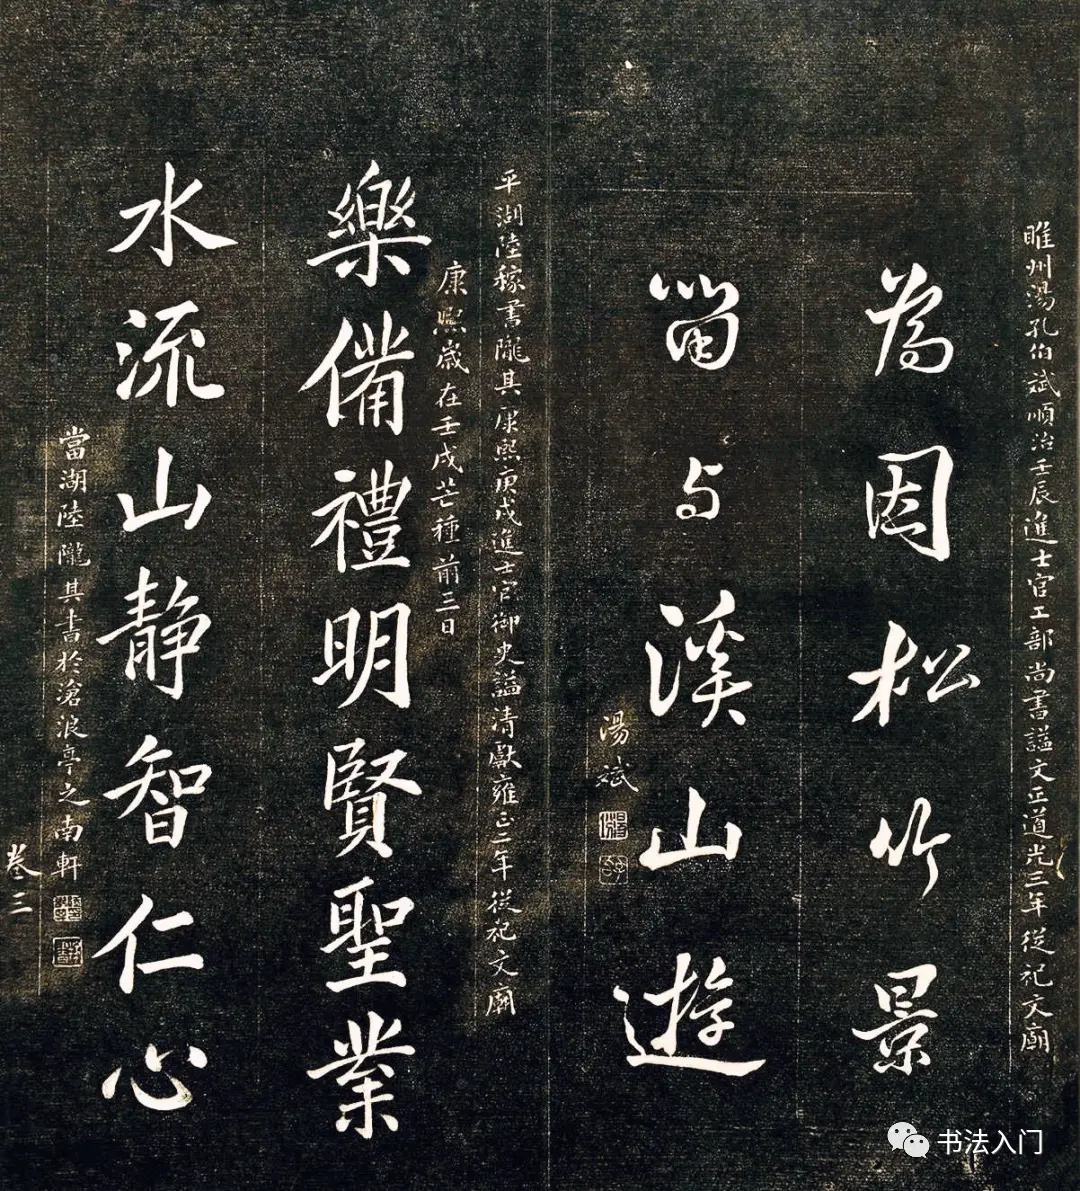 睢州湯孔伯斌順治壬辰進士官工部尚書謚文正道光三年從祀文廟
為因松竹景
留与溪山遊
湯斌
平湖陸稼書隴其康熙庚戌進士官御史謚清獻雍正二年從祀文廟
康熙歲在壬戌芒種前三日
樂備禮明賢聖業
水流山靜智仁心
當湖陸隴其書於滄浪亭之南軒
卷三
书法入门